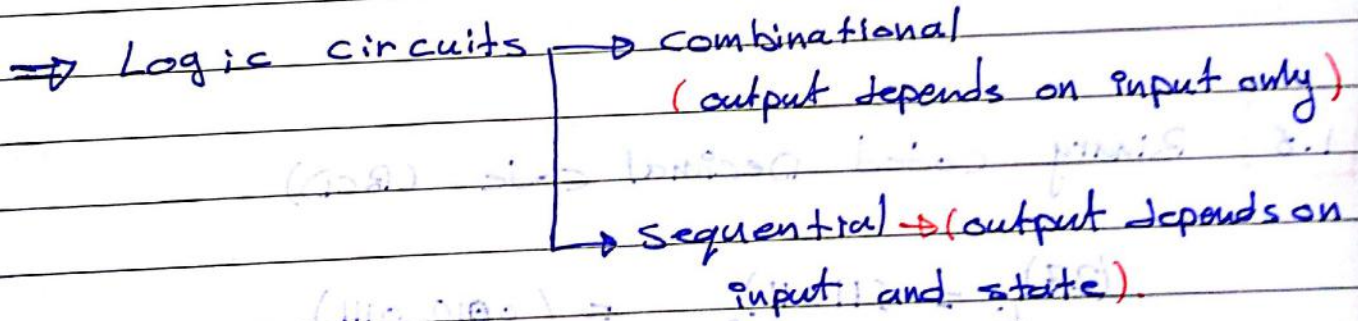 ⇒ Logic circuits → combinational
(output depends on input only)
→ sequential → (output depends on
input and state).